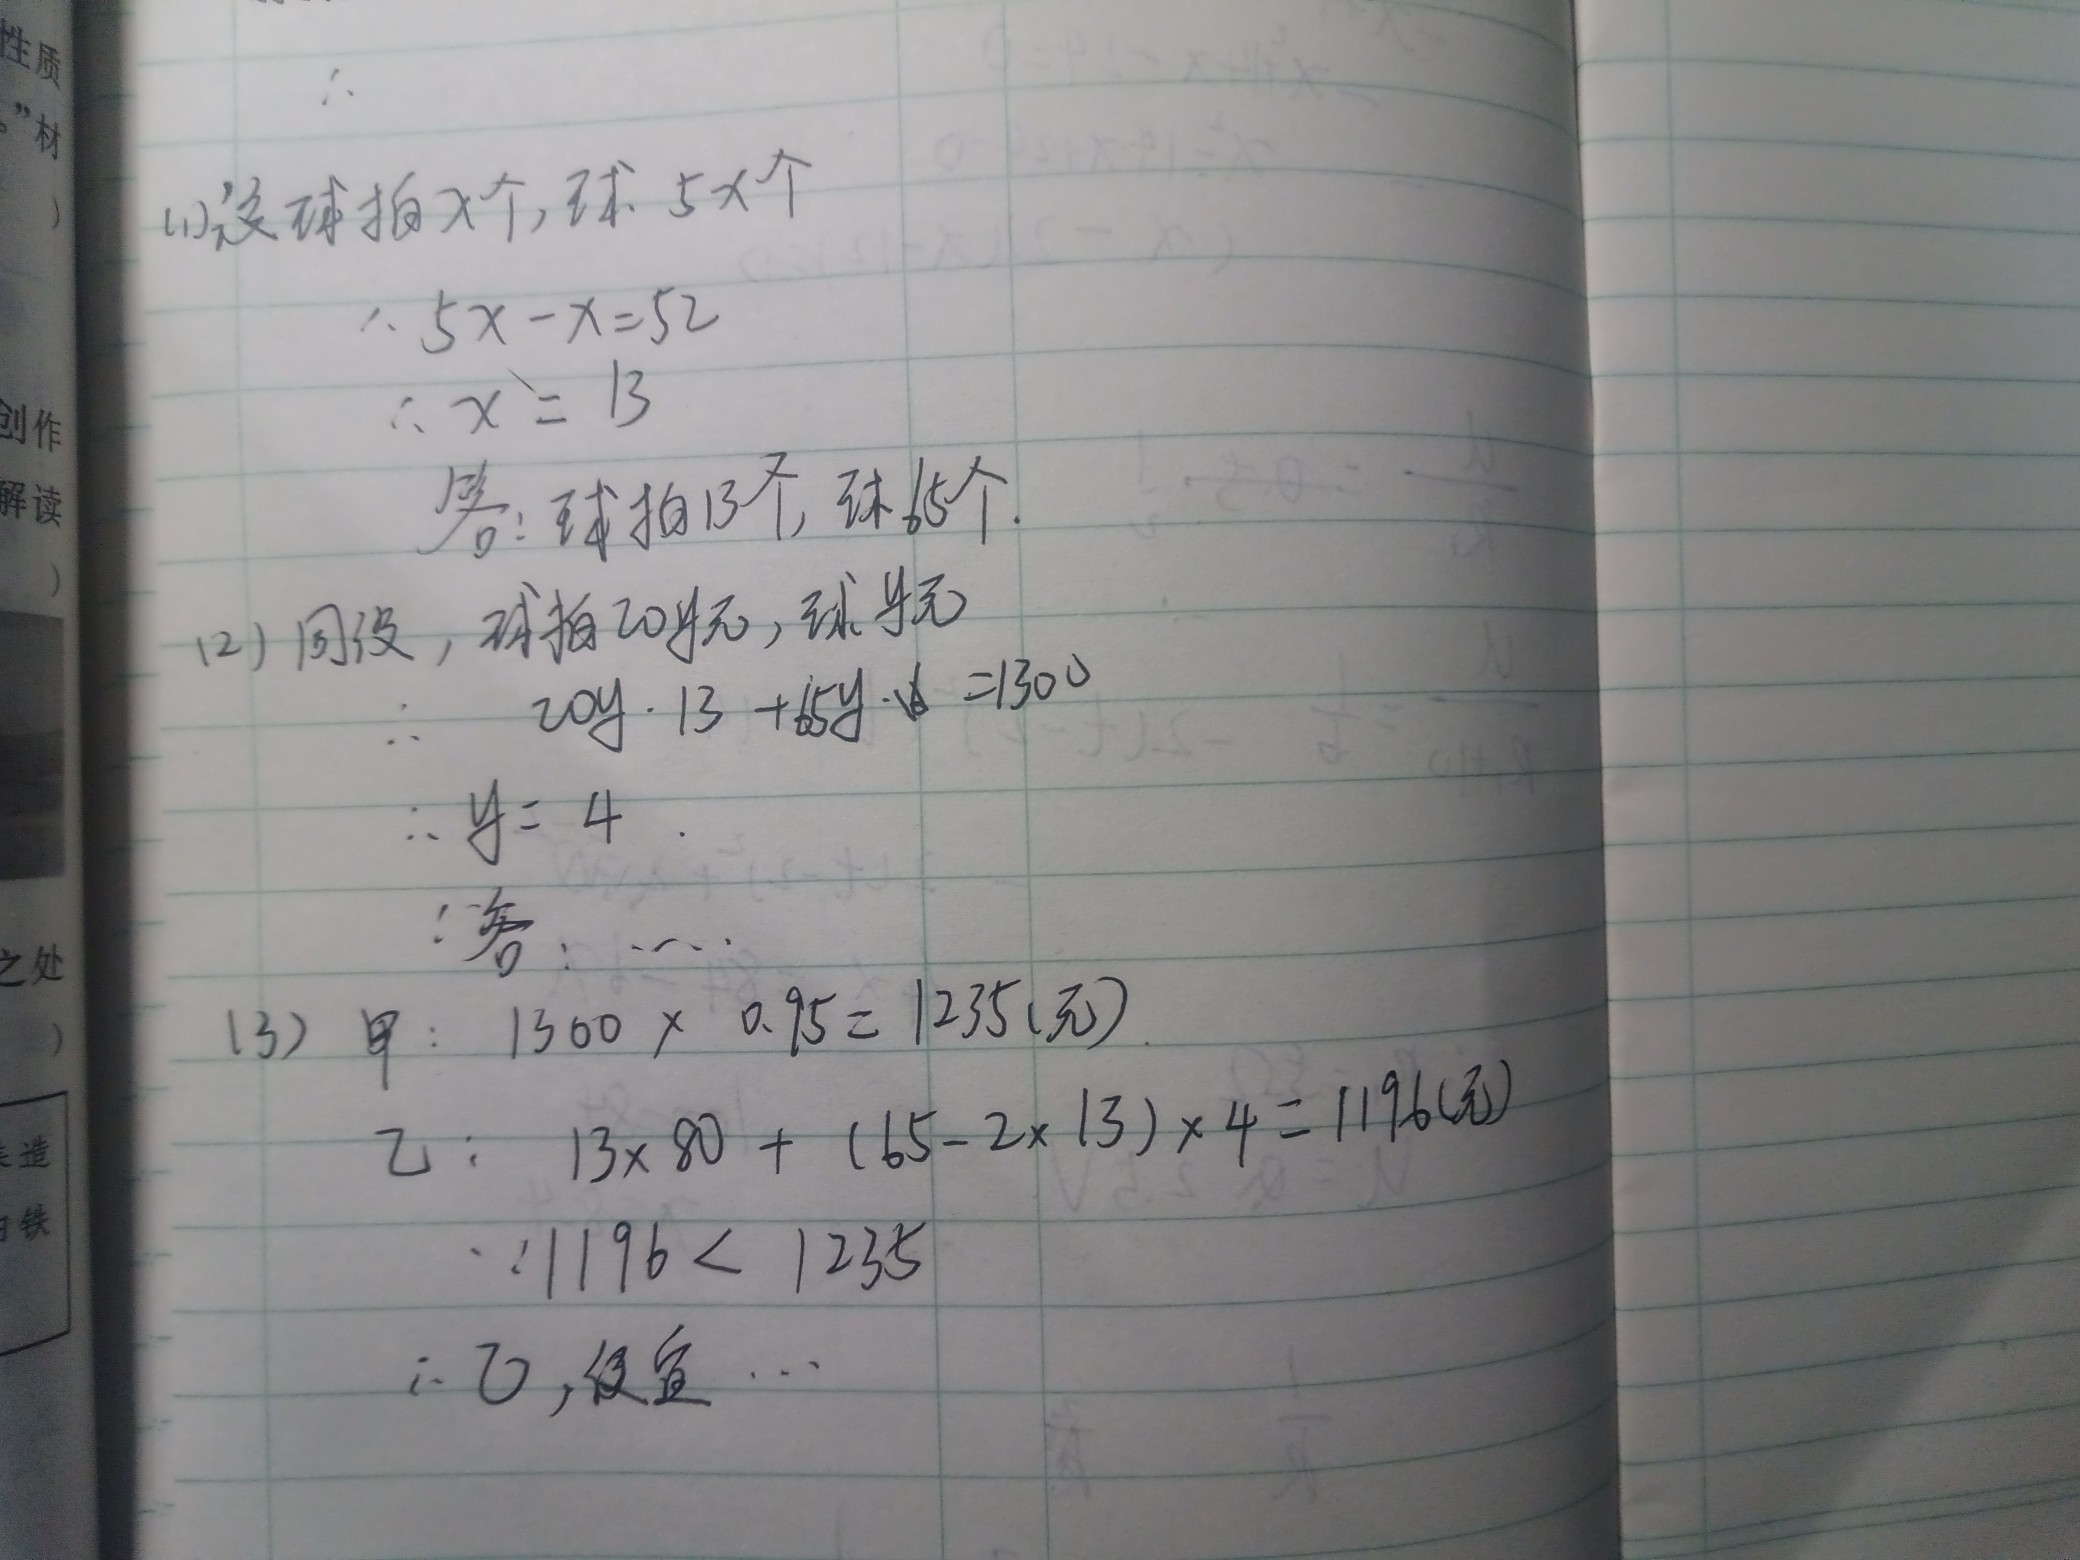 性质
。”材
)
创作
解读
)
之处
)
造
铁
∴
(1)设球拍x个,球5x个
∴ 5x-x=52
∴ x=13
答:球拍13个,球65个.
(2)同设,球拍20y元,球y元
∴ 20y·13+65y·=1300
∴ y=4.
∴答:……
(3)甲: 1300×0.95=1235(元).
乙: 13×80+(65-2×13)×4=1196(元)
∵1196<1235
∴乙,便宜…